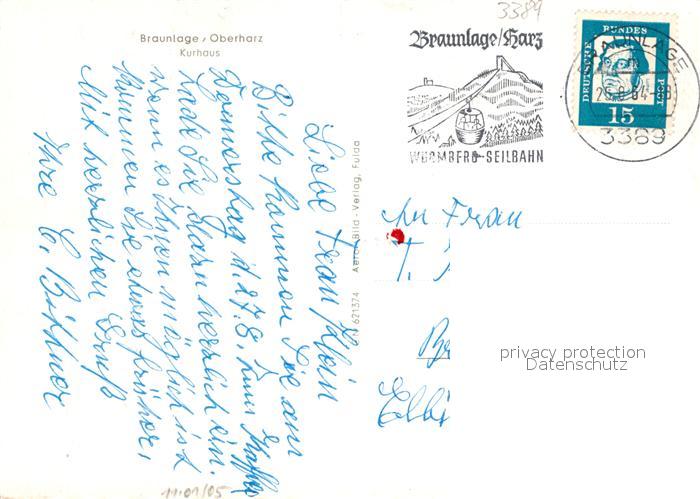 3389
Braunlage, Oberharz
Kurhaus
Braunlage/Harz
WURMBERG-SEILBAHN
BRAUNLAGE
3389
DEUTSCHE BUNDES POST
15
Liebe Frau Klein
Bitte kommen Sie am
Donnerstag d. 27.8. zum Kaffee
lade Sie herzlich ein.
wenn es Ihnen möglich ist
kommen Sie etwas früher,
Mit herzlichen Gruß
Ihre E. Büttner
N 621374 Aero-Bild-Verlag, Fulda
An Frau
T.
Be
Elbi
privacy protection
Datenschutz
11.01/05